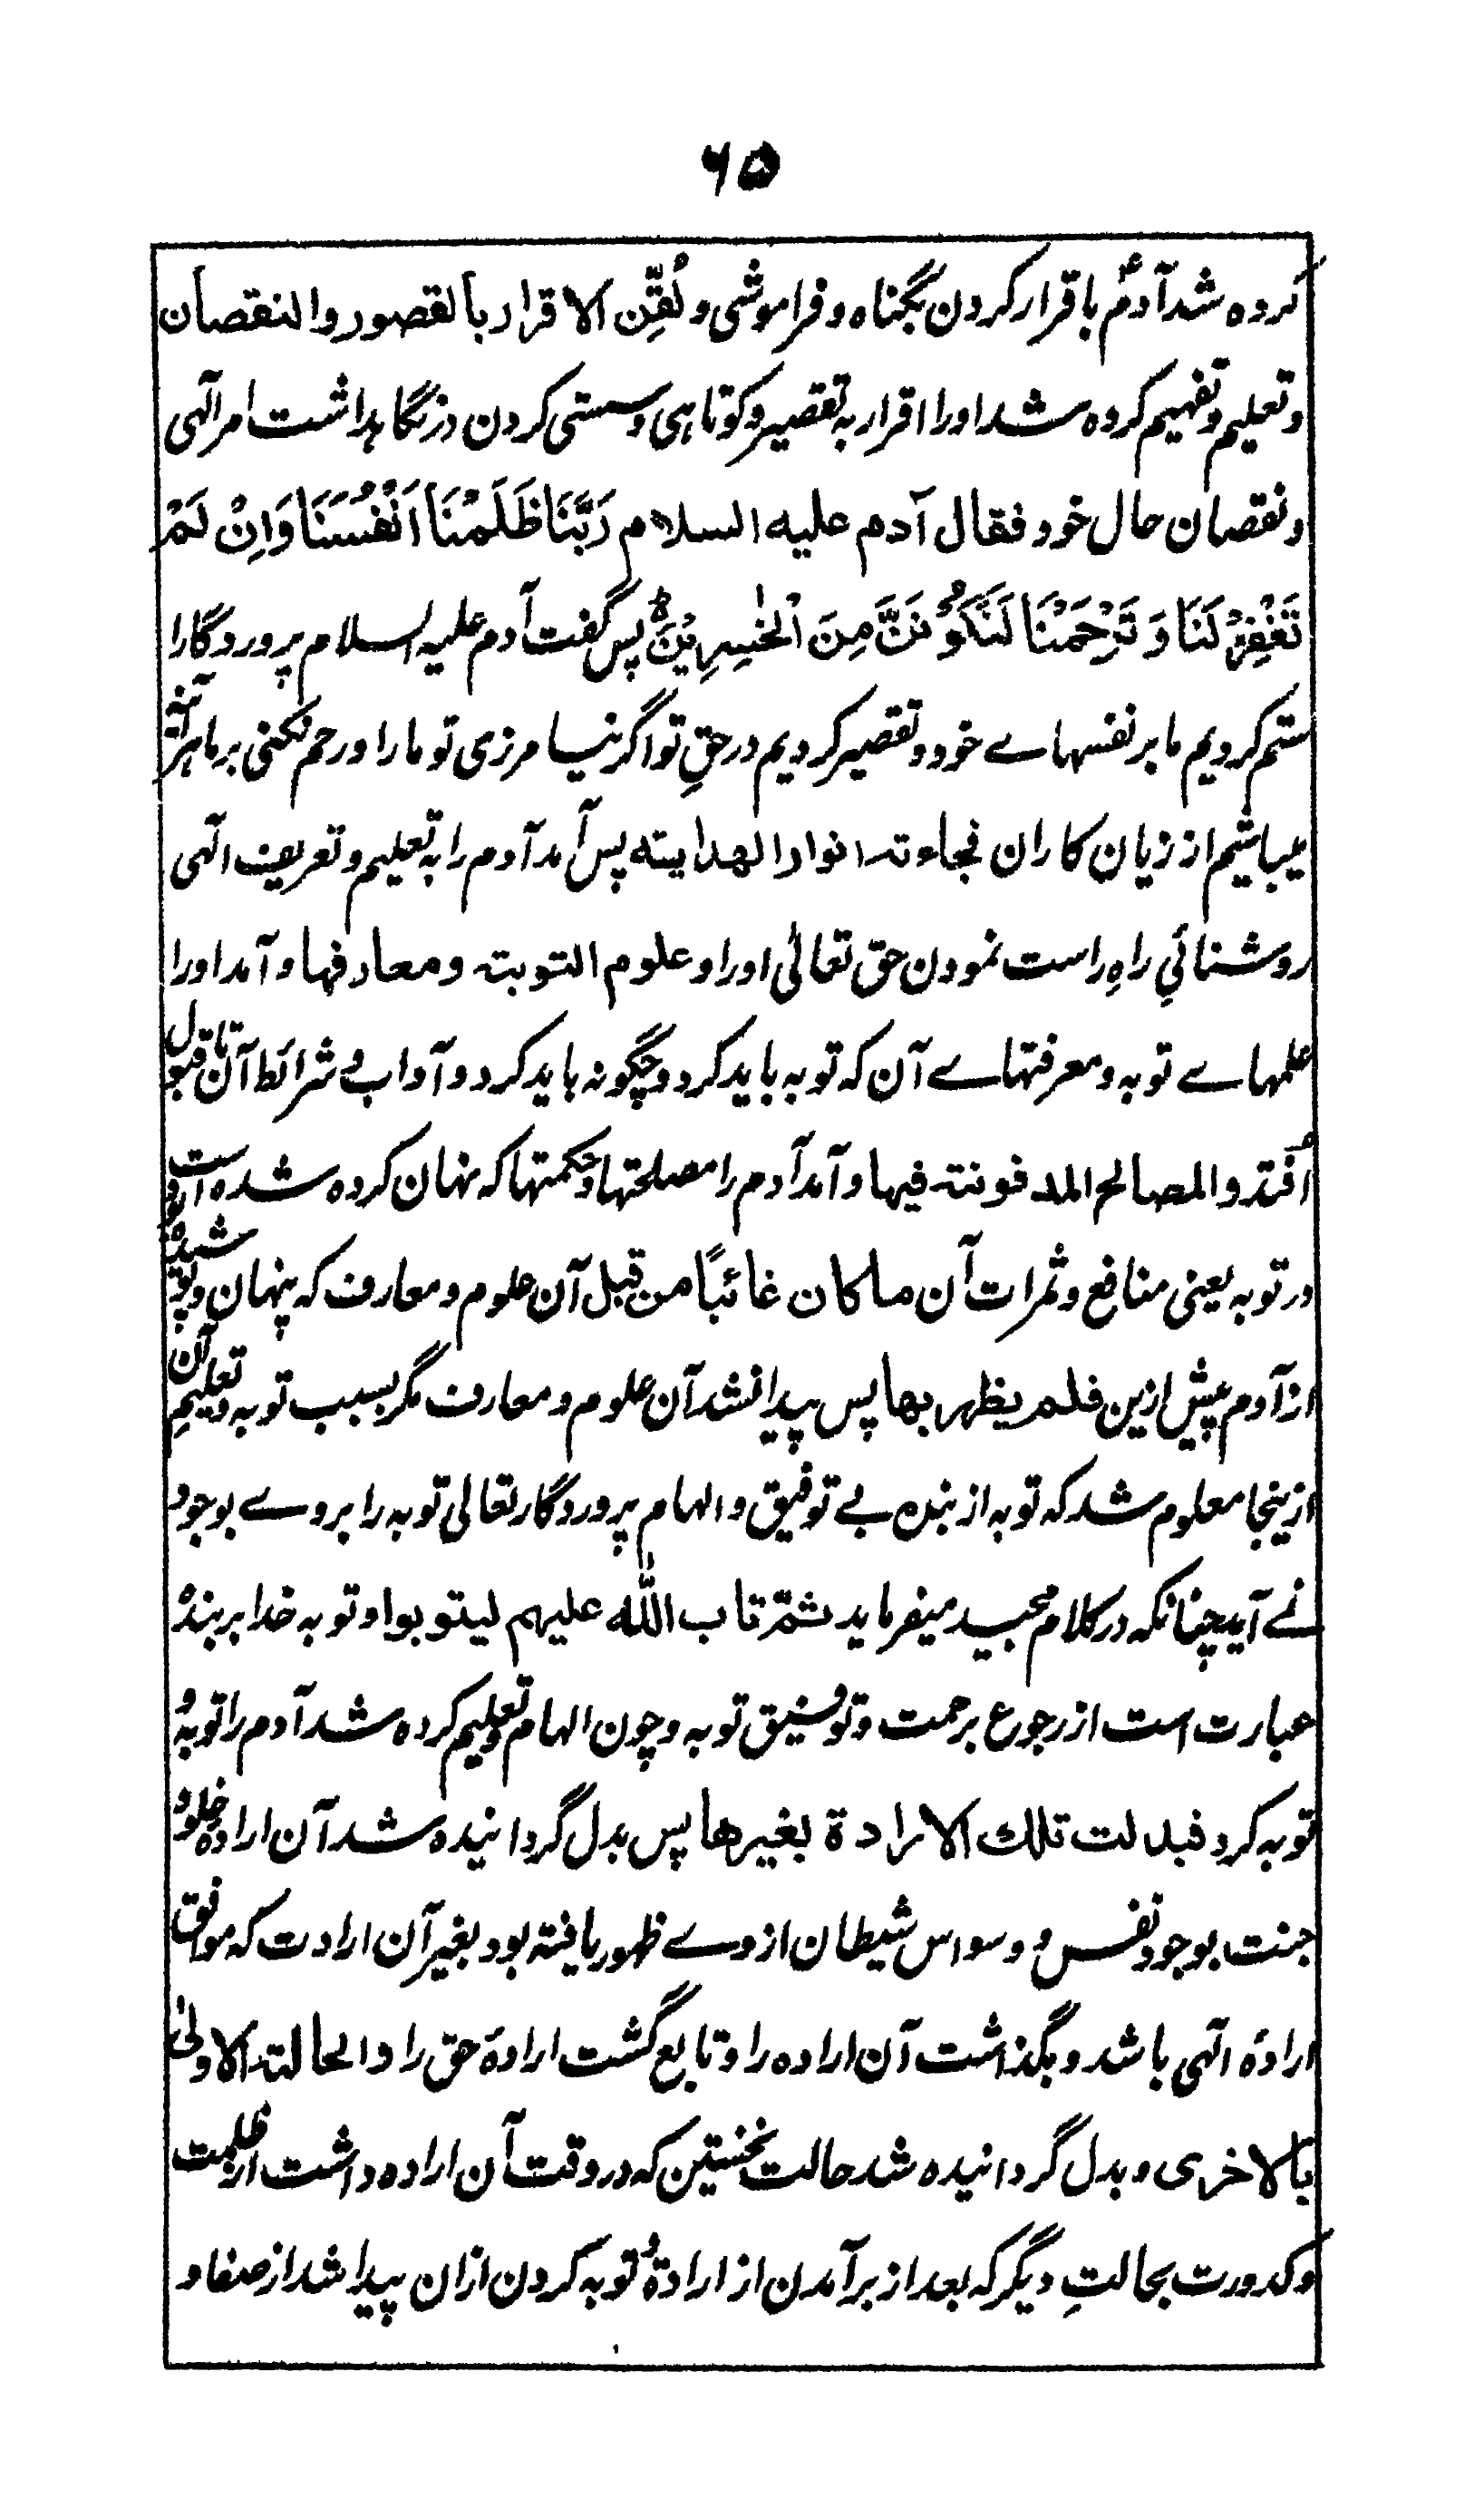 ۶۵
کرده شد آدمؑ باقرار کردن بگناه و فراموشی و لُقِّن الاقرار بالقصور والنقصان
و تعلیم و تفهیم کرده شد او را اقرار به تقصیر و کوتاهی و سستی کردن در نگاهداشت امر الٓهی
و نقصان حال خود فقال آدم علیه السلام رَبَّنَا ظَلَمْنَا اَنْفُسَنَا وَاِنْ لَمْ
تَغْفِرْ لَنَا وَ تَرْحَمْنَا لَنَكُوْنَنَّ مِنَ الْخٰسِرِيْنَ پس گفت آدم علیه السلام پروردگارا
ستم کردیم ما بر نفسهاے خود و تقصیر کردیم در حقِ تو اگر نیامرزی تو ما را و رحم نکنی بر ما هر آئنه
میباشیم از زیان کاران فجاءته انوار الهدایته پس آمد آدم را به تعلیم و تعریف الٓهی
روشنائیِ راهِ راست نمودن حق تعالیٰ او را و علوم التوبته و معارفها و آمد او را
علمهاے توبه و معرفتهاے آن که توبه باید کرد و چگونه باید کرد و آداب و شرائط آن تا قبول
اُفتد والمصالح المدفونته فیها و آمد آدم را مصلحتها و حکمتها که نهان کرده شده است
در توبه یعنی منافع و ثمرات آن ماکان غائبًا من قبل آن علوم و معارف که پنهان و پوشیده
از آدم پیش ازین فلم یظهر بها پس پیدا نشد آن علوم و معارف مگر بسبب توبه و تعلیمِ آن
ازینجا معلوم شد که توبه از بنده بے توفیق و الهام پروردگار تعالیٰ توبه را بروے بوجود
نے آید چنانکه در کلام مجید میفرماید ثمّ تاب اللّٰه علیهم لیتوبوا و توبه خدا بر بندهٔ
عبارت است از رجوع برحمت و توفیق توبه و چون الهام و تعلیم کرده شد آدم را توبه و
توبه کرد فبدلت تلك الارادة بغیرها پس بدل گردانیده شد آن ارادهٔ خلود
جنت بوجود نفس و وسواس شیطان از وے ظهور یافته بود بغیر آن ارادت که موافق
ارادهٔ الٓهی باشد و بگذاشت آن اراده را و تابع گشت ارادهٔ حق را والحالته الاولیٰ
بالاخری و بدل گردانیده شد حالت نخستین که در وقت آن اراده داشت از ظلمت
و کدورت بحالتِ دیگر که بعد از برآمدن از ارادهٔ و توبه کردن ازان پیدا شد از صفا و